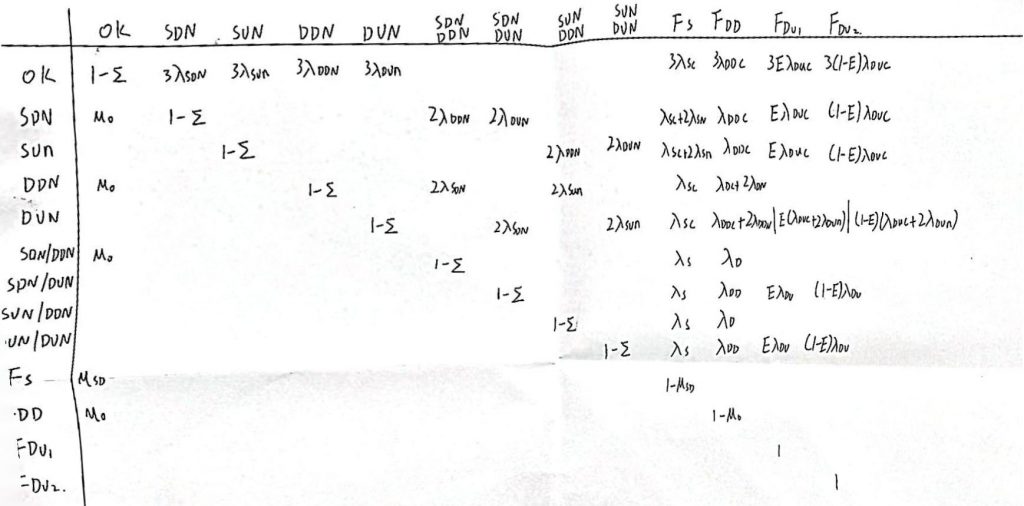 OK SDN SUN DDN DUN SDN DDN SDN DUN SUN DDN SUN DUN FS FDD FDU1 FDU2.
OK 1-Σ 3λSDN 3λSUN 3λDDN 3λDUN 3λSC 3λDDC 3EλDUC 3(1-E)λDUC
SDN M0 1-Σ 2λDDN 2λDUN λSC+2λSN λDDC EλDUC (1-E)λDUC
SUN 1-Σ 2λDDN 2λDUN λSC+2λSN λDDC EλDUC (1-E)λDUC
DDN M0 1-Σ 2λSDN 2λSUN λSC λDC+2λDN
DUN 1-Σ 2λSDN 2λSUN λSC λDDC+2λDDN|E(λDUC+2λDUN)|(1-E)(λDUC+2λDUN)
SDN/DDN M0 1-Σ λS λD
SDN/DUN 1-Σ λS λDD EλDU (1-E)λDU
SUN/DDN 1-Σ λS λD
UN/DUN 1-Σ λS λDD EλDU (1-E)λDU
FS MSD 1-MSD
DD M0 1-M0
FDU1 1
FDU2. 1